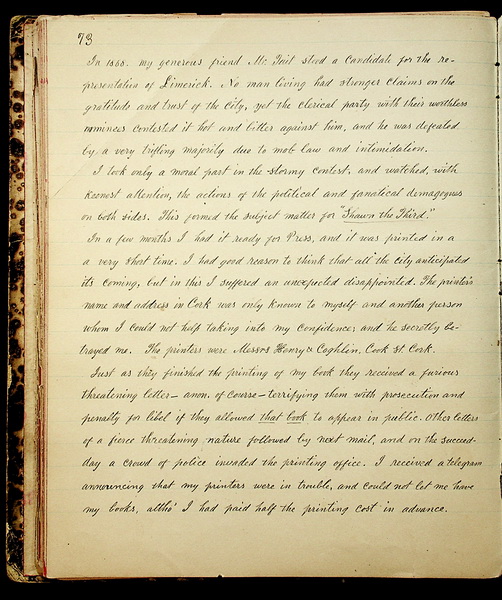 73
In 1868. my generous friend Mr Tait stood a Candidate for the re-
presentation of Limerick. No man living had stronger claims on the
gratitude and trust of the City, yet the clerical party with their worthless
nominees contested it hot and bitter against him, and he was defeated
by a very trifling majority due to mob law and intimidation.
I took only a moral part in the stormy contest, and watched, with
keenest attention, the actions of the political and fanatical demagogues
on both sides. This formed the subject matter for "Shawn the Third."
In a few months I had it ready for Press, and it was printed in a
a very short time. I had good reason to think that all the city anticipated
its coming, but in this I suffered an unexpected disappointed. The printer's
name and address in Cork was only known to myself and another person
whom I could not help taking into my Confidence; and he secretly be-
trayed me. The printers were Messrs Henry & Coghlin, Cook St. Cork.
Just as they finished the printing of my book they received a furious
threatening letter - anon. of course - terrifying them with prosecution and
penalty for libel if they allowed that book to appear in public. Other letters
of a fierce threatening nature followed by next mail, and on the succeed-
day a crowd of police invaded the printing office. I received a telegram
announcing that my printers were in trouble, and could not let me have
my books, altho' I had paid half the printing cost in advance.